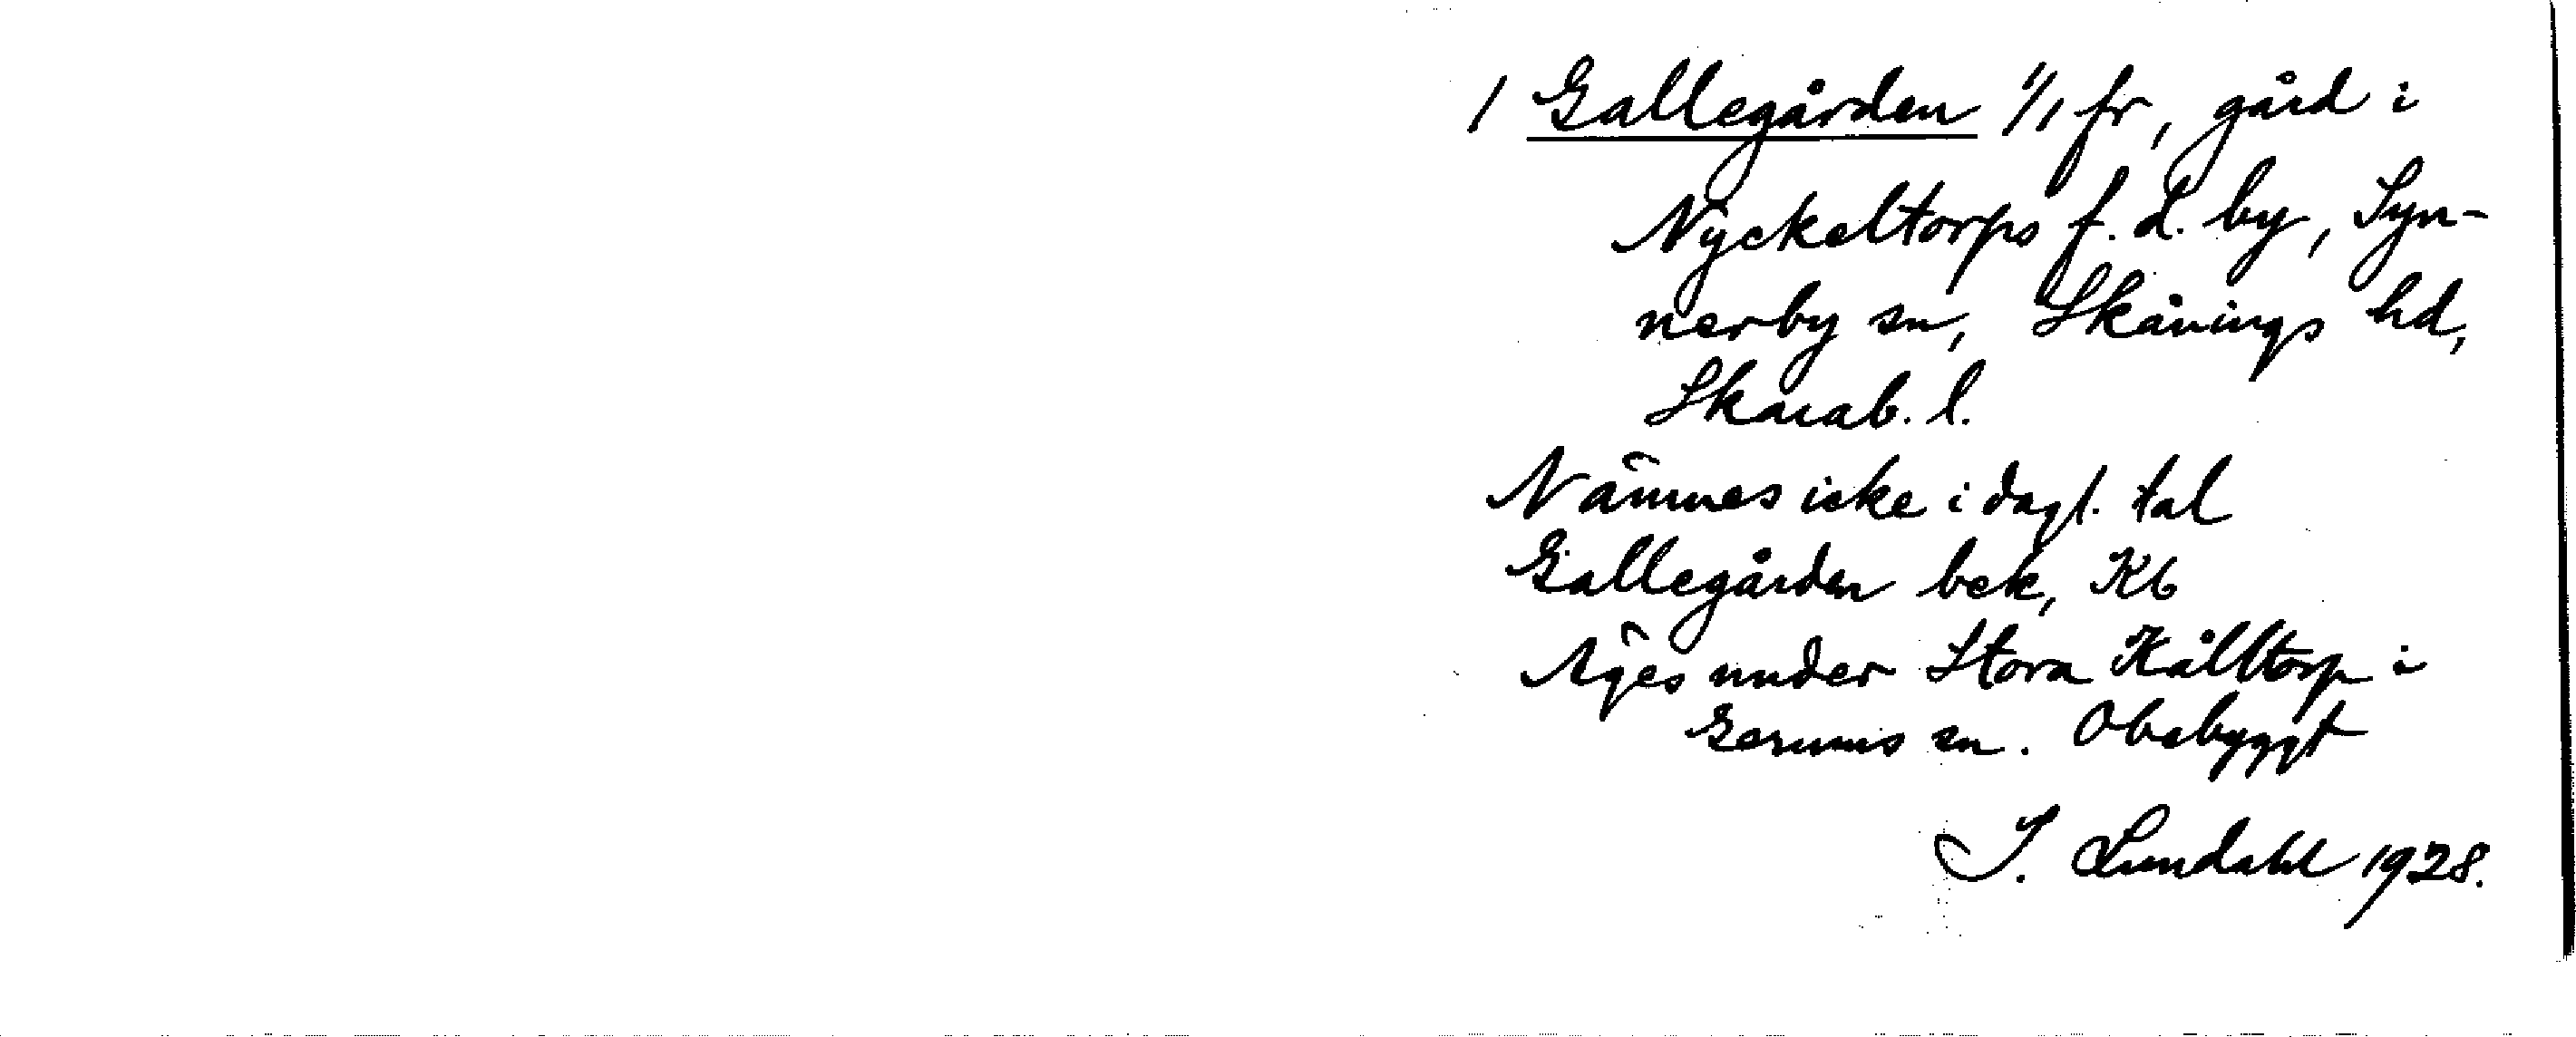 1 Gallegården 1/1 fr, gård i
Nyckeltorps f.d. by, Syn-
nerby sn, Skånings hd,
Skarab. l.
Nämnes icke i dagl. tal
Gallegården bek, Kb
Äges under Stora Kålltorp i
Gerums sn. Obebyggt
I. Lundahl 1928.